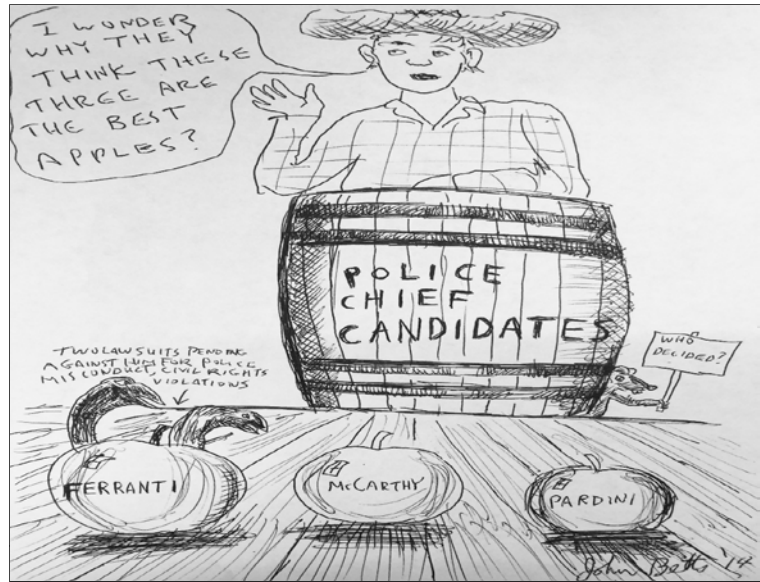 I WONDER
WHY THEY
THINK THESE
THREE ARE
THE BEST
APPLES?
POLICE
CHIEF
CANDIDATES
WHO
DECIDED?
TWO LAWSUITS PENDING
AGAINST HIM FOR POLICE
MISCONDUCT, CIVIL RIGHTS
VIOLATIONS
FERRANTI
McCARTHY
PARDINI
John Betts '14